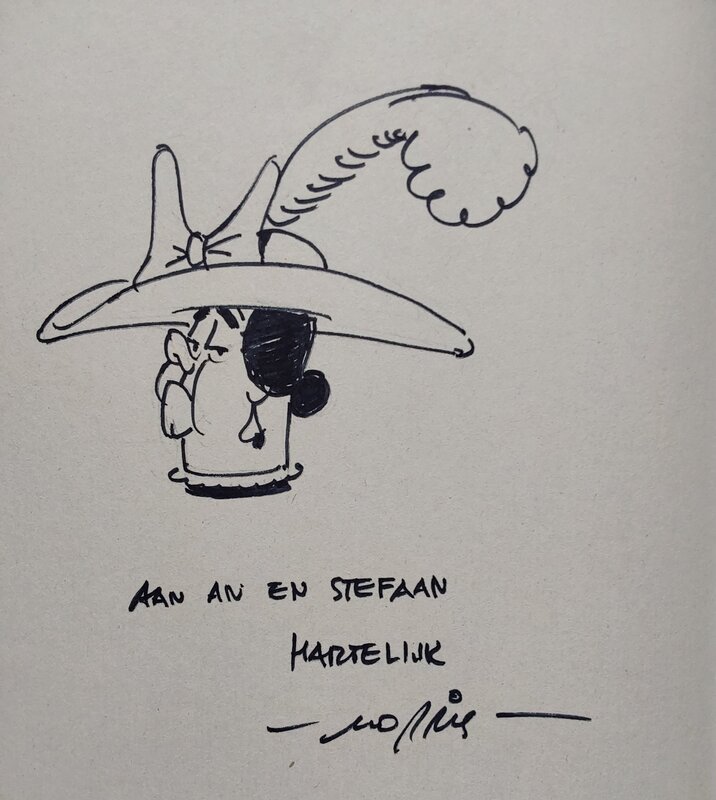 AAN AN EN STEFAAN
HARTELIJK
— MORRIS —